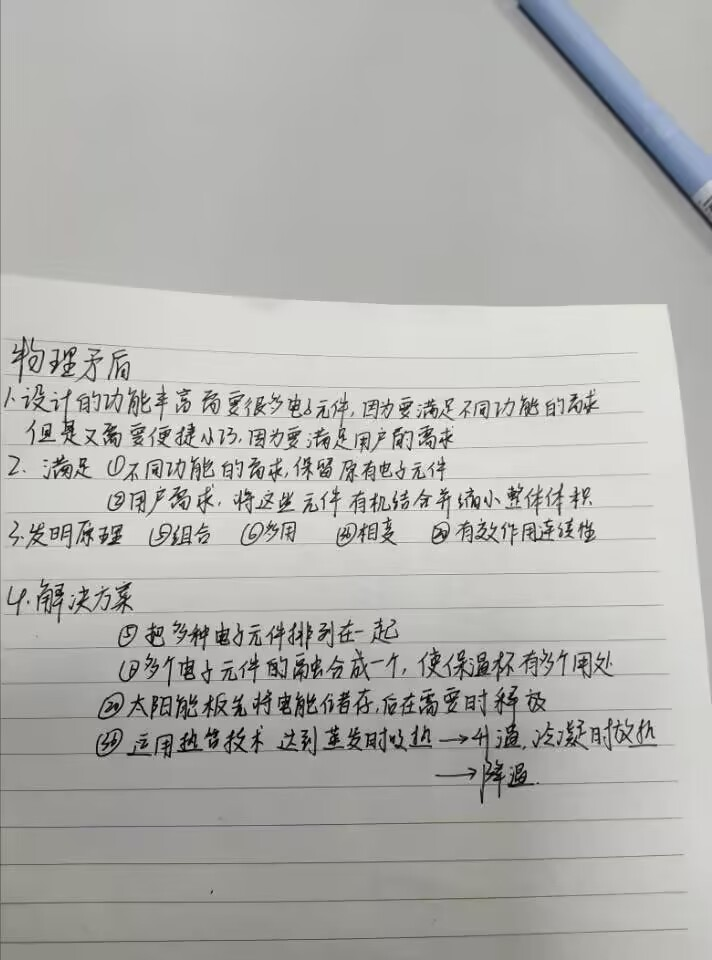 物理矛盾
1.设计的功能丰富需要很多电子元件,因为要满足不同功能的需求
但是又需要便捷小巧,因为要满足用户的需求
2.满足 ①不同功能的需求,保留原有电子元件
②用户需求,将这些元件有机结合并缩小整体体积
3.发明原理 ⑤组合 ⑥多用 ㊱相变 ⑳有效作用连续性
4.解决方案
⑤把多种电子元件排列在一起
⑥多个电子元件的融合成一个,使保温杯有多个用处
⑳太阳能板先将电能储存,后在需要时释放
㊱运用热管技术 达到蒸发时吸热→升温,冷凝时放热
→降温.